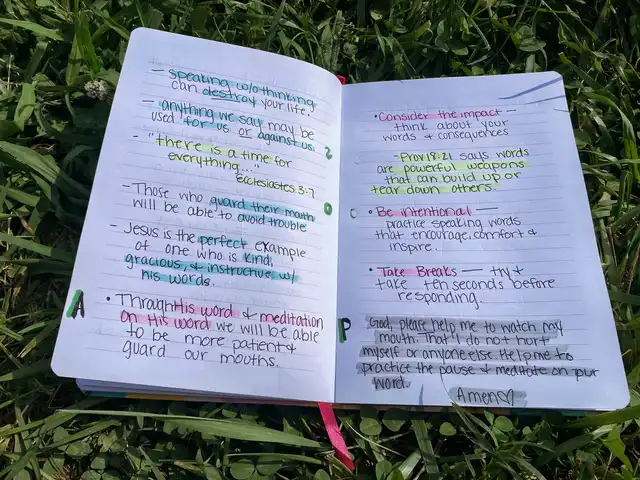 - speaking w/o thinking
can destroy your life.
- anything we say may be
used for us or against us.
- "there is a time for
everything..."
Ecclesiastes 3:7
- Those who guard their mouth
will be able to avoid trouble
- Jesus is the perfect example
of one who is kind,
gracious, & instructive w/
his words.
A
• Through His word & meditation
on His word we will be able
to be more patient &
guard our mouths.
• Consider the impact —
think about your
words & consequences
- Prov 18:21 says words
are powerful weapons
that can build up or
tear down others.
• Be intentional —
practice speaking words
that encourage, comfort &
inspire.
• Take Breaks — try &
take ten seconds before
responding.
P
God, please help me to watch my
mouth. That I do not hurt
myself or anyone else. Help me to
practice the pause & meditate on your
word.
Amen♡